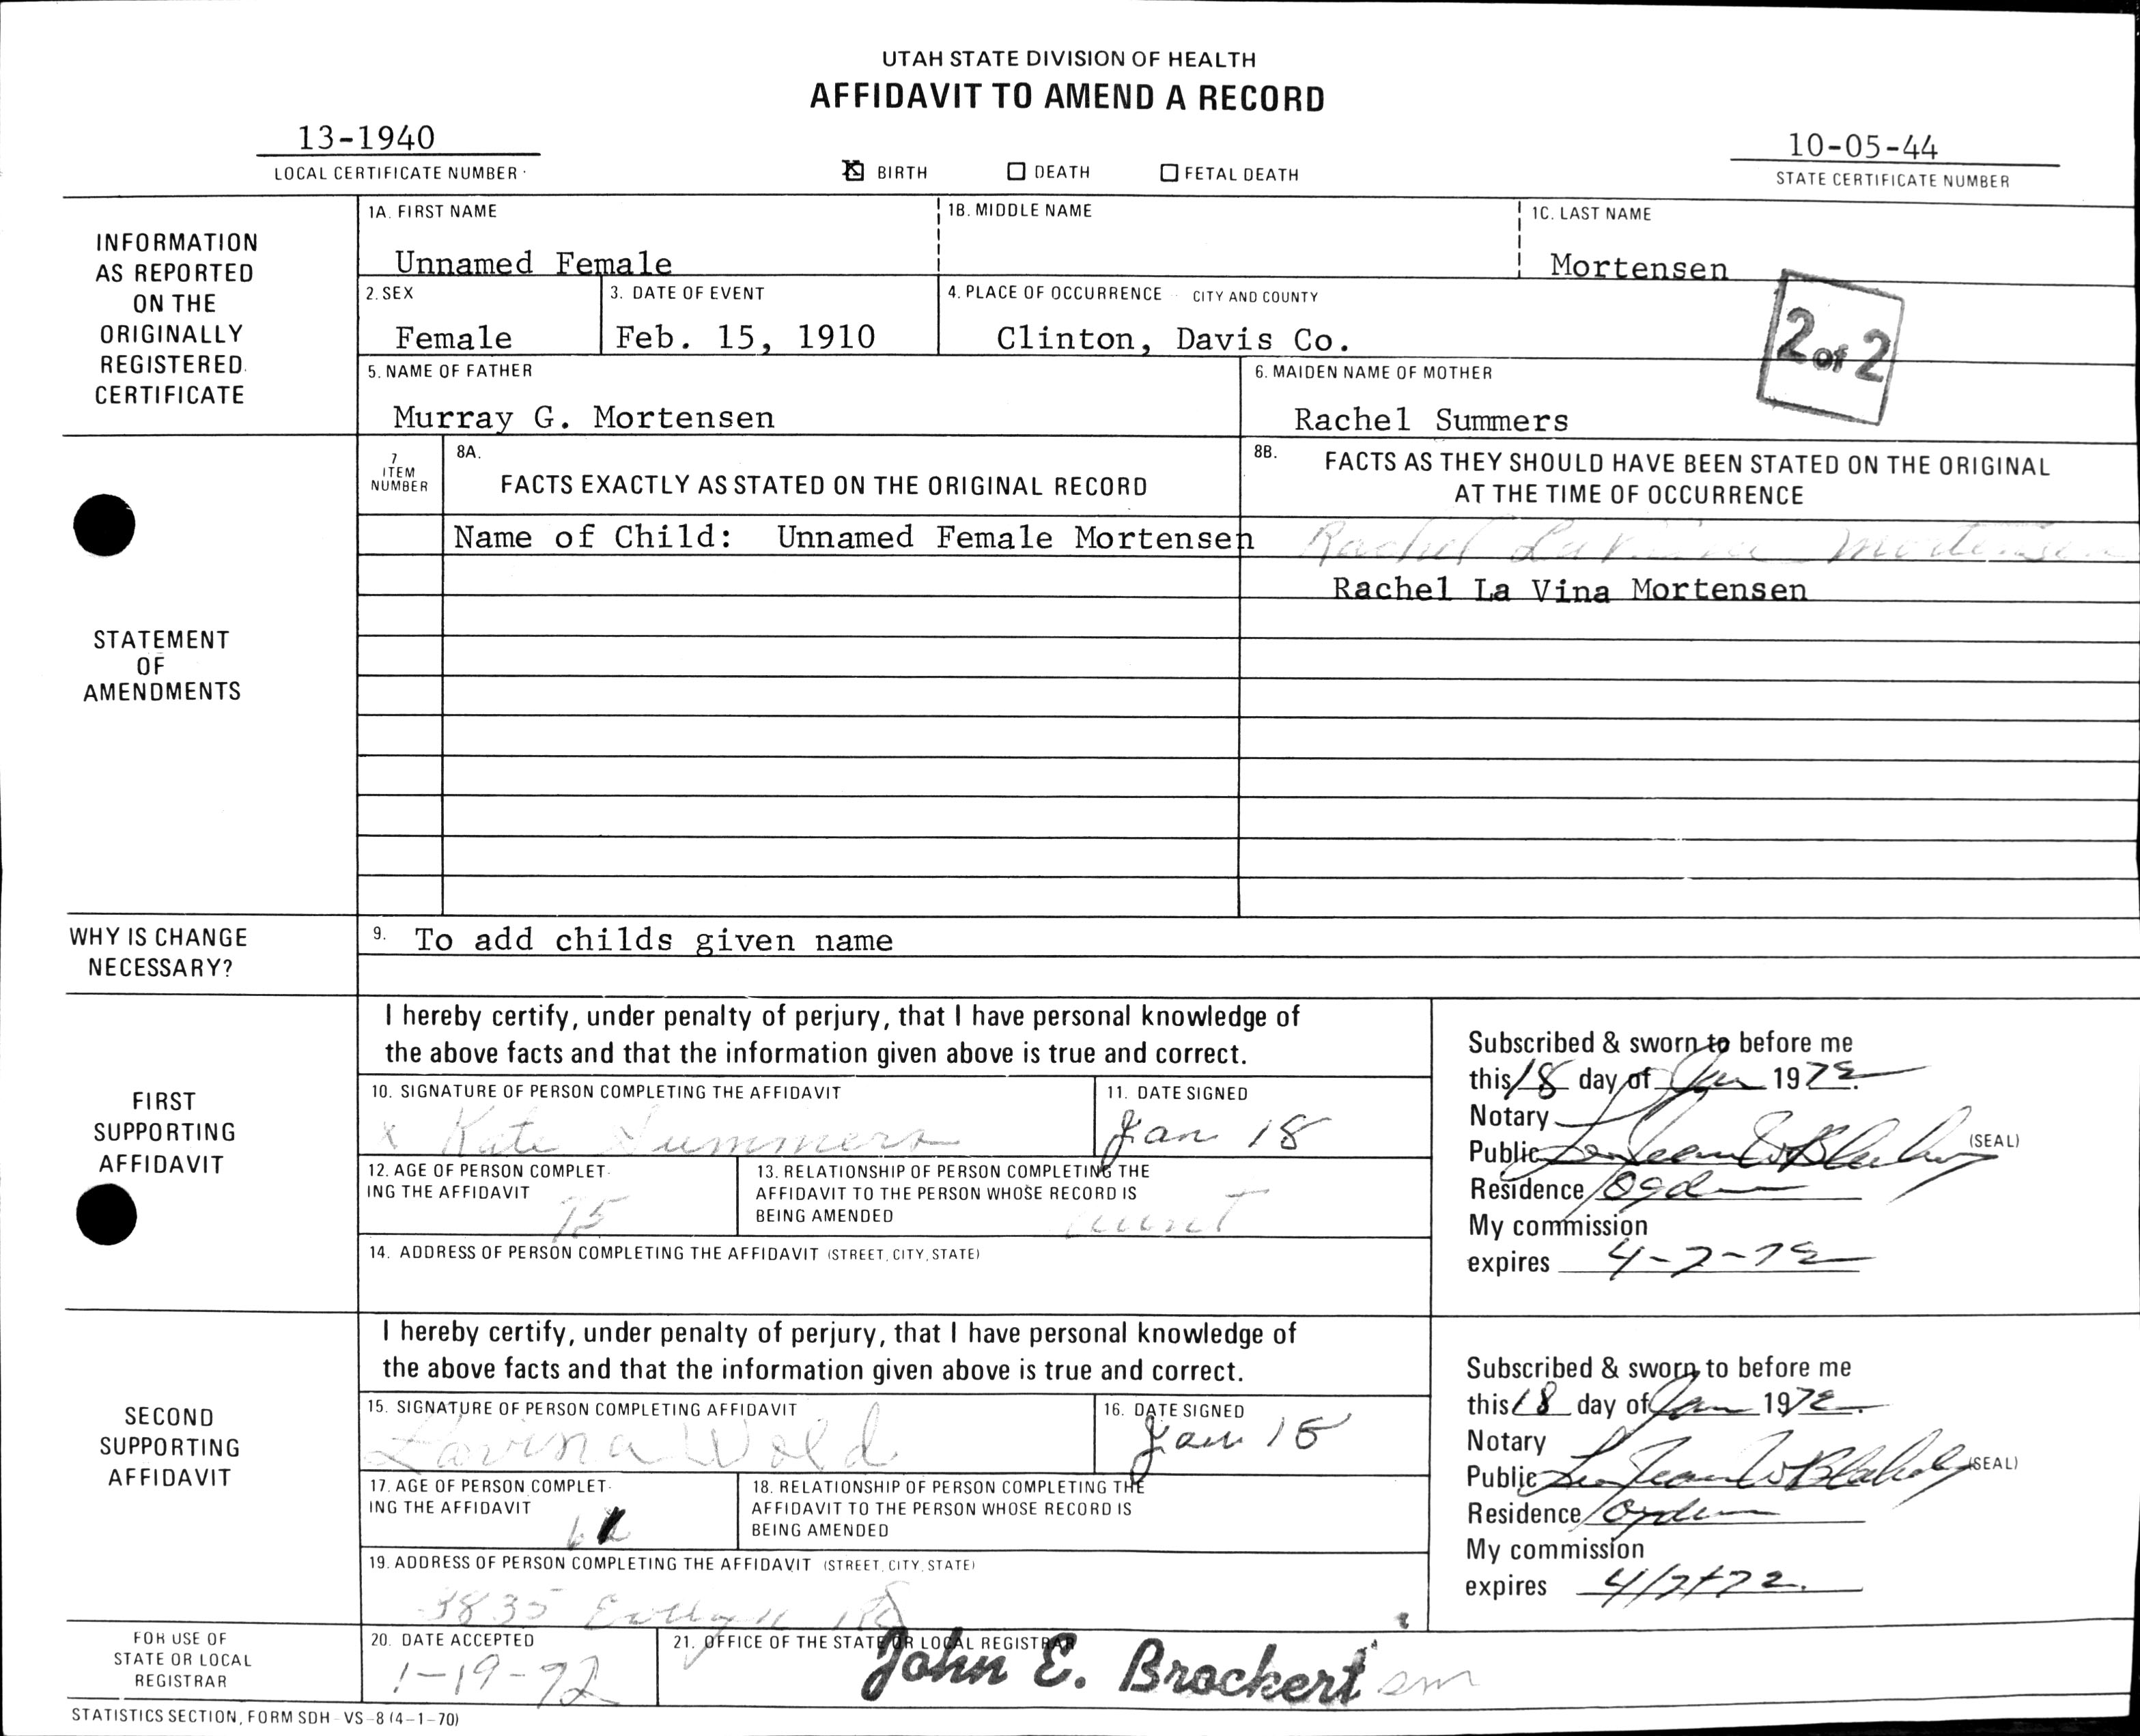 UTAH STATE DIVISION OF HEALTH
AFFIDAVIT TO AMEND A RECORD
13-1940
LOCAL CERTIFICATE NUMBER
BIRTH
DEATH
FETAL DEATH
10-05-44
STATE CERTIFICATE NUMBER
INFORMATION
AS REPORTED
ON THE
ORIGINALLY
REGISTERED
CERTIFICATE
1A. FIRST NAME
Unnamed Female
1B. MIDDLE NAME
1C. LAST NAME
Mortensen
2. SEX
Female
3. DATE OF EVENT
Feb. 15, 1910
4. PLACE OF OCCURRENCE CITY AND COUNTY
Clinton, Davis Co.
2 of 2
5. NAME OF FATHER
Murray G. Mortensen
6. MAIDEN NAME OF MOTHER
Rachel Summers
STATEMENT
OF
AMENDMENTS
7
ITEM
NUMBER
8A.
FACTS EXACTLY AS STATED ON THE ORIGINAL RECORD
8B.
FACTS AS THEY SHOULD HAVE BEEN STATED ON THE ORIGINAL
AT THE TIME OF OCCURRENCE
Name of Child: Unnamed Female Mortensen
Rachel Mortensen
Rachel La Vina Mortensen
WHY IS CHANGE
NECESSARY?
9. To add childs given name
FIRST
SUPPORTING
AFFIDAVIT
I hereby certify, under penalty of perjury, that I have personal knowledge of
the above facts and that the information given above is true and correct.
10. SIGNATURE OF PERSON COMPLETING THE AFFIDAVIT
x Kate Summers
11. DATE SIGNED
Jan 18
12. AGE OF PERSON COMPLET-
ING THE AFFIDAVIT
75
13. RELATIONSHIP OF PERSON COMPLETING THE
AFFIDAVIT TO THE PERSON WHOSE RECORD IS
BEING AMENDED
aunt
14. ADDRESS OF PERSON COMPLETING THE AFFIDAVIT (STREET, CITY, STATE)
Subscribed & sworn to before me
this 18 day of Jan 1972
Notary
Public
(SEAL)
Residence Ogden
My commission
expires 4-7-72
SECOND
SUPPORTING
AFFIDAVIT
I hereby certify, under penalty of perjury, that I have personal knowledge of
the above facts and that the information given above is true and correct.
15. SIGNATURE OF PERSON COMPLETING AFFIDAVIT
Lavina Wold
16. DATE SIGNED
Jan 18
17. AGE OF PERSON COMPLET-
ING THE AFFIDAVIT
18. RELATIONSHIP OF PERSON COMPLETING THE
AFFIDAVIT TO THE PERSON WHOSE RECORD IS
BEING AMENDED
19. ADDRESS OF PERSON COMPLETING THE AFFIDAVIT (STREET, CITY, STATE)
3835
Subscribed & sworn to before me
this 18 day of Jan 1972
Notary
Public
(SEAL)
Residence Ogden
My commission
expires 4/7/72
FOR USE OF
STATE OR LOCAL
REGISTRAR
20. DATE ACCEPTED
1-19-72
21. OFFICE OF THE STATE OR LOCAL REGISTRAR
John E. Brockert sm
STATISTICS SECTION, FORM SDH-VS-8 (4-1-70)